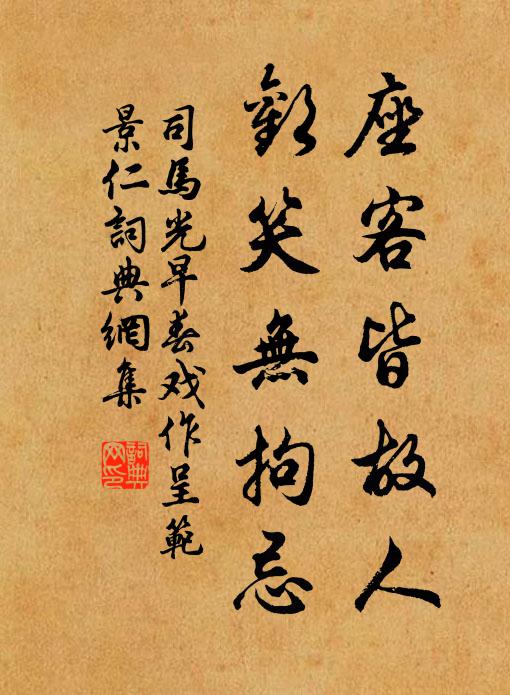 座客皆故人
歡笑無拘忌
司馬光早春戏作呈範
景仁詞典網集
詞典
网印